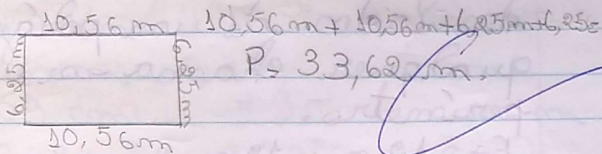 10,56 m 10,56m + 10,56m + 6,25m + 6,25=
6,25m 6,25m
P= 33,62 m.
10,56m